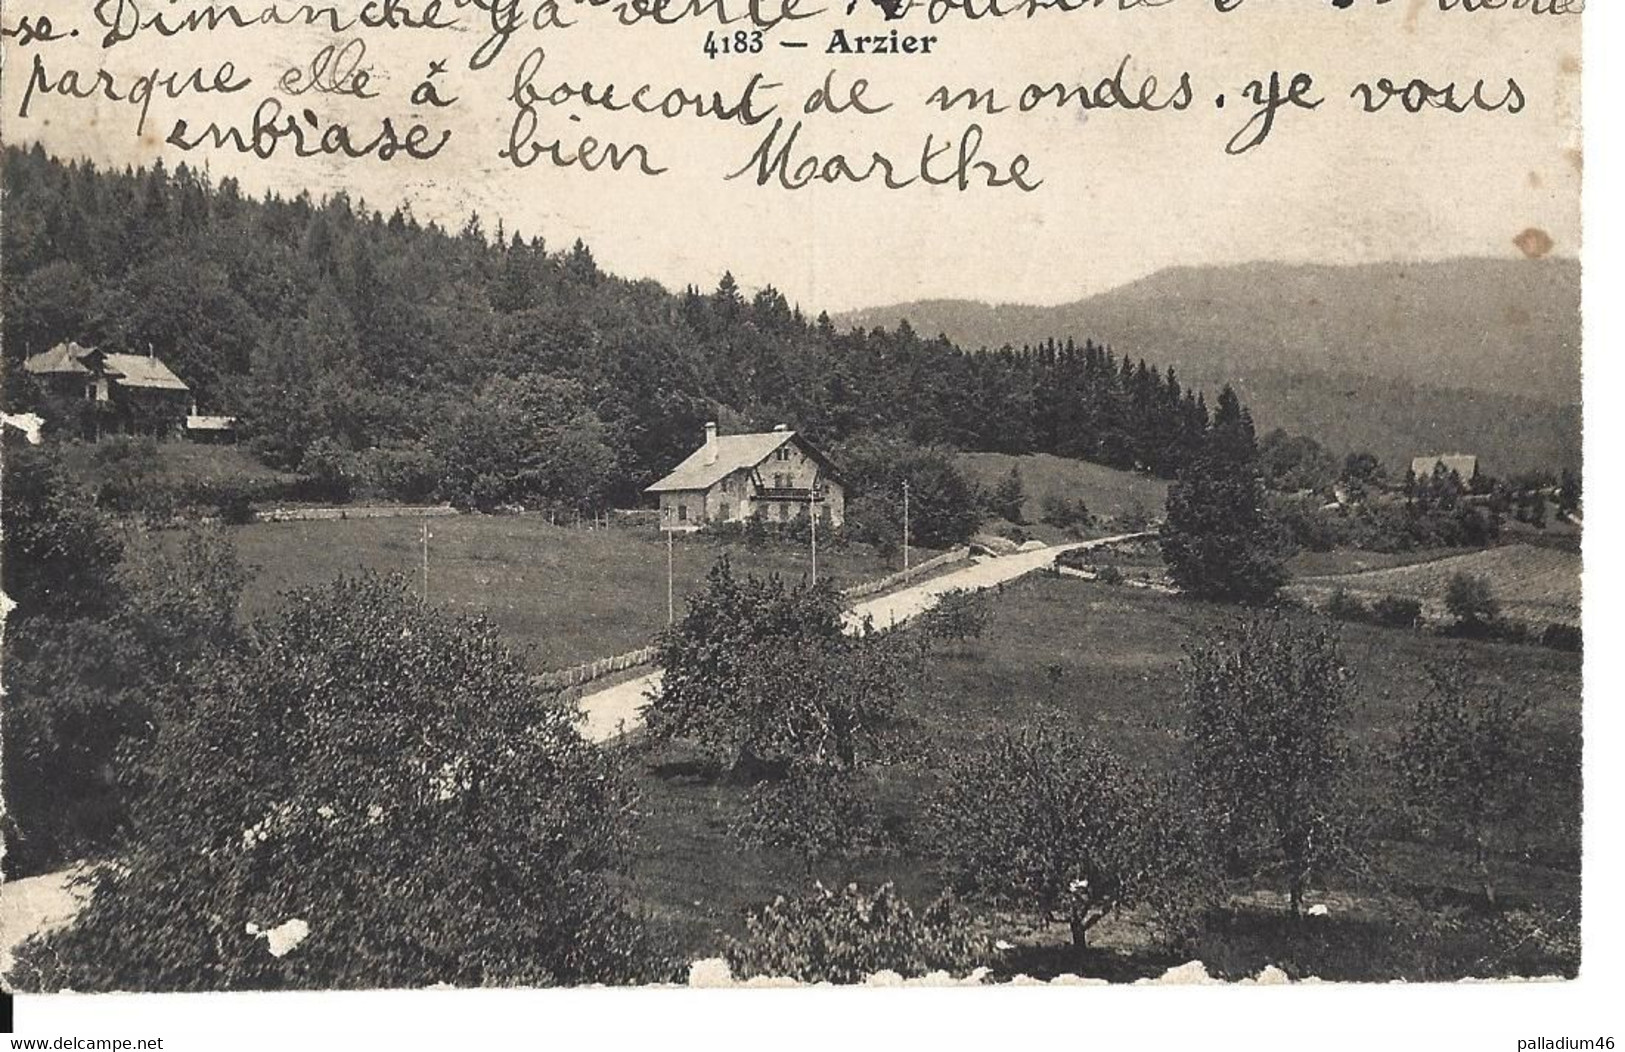 se. Dimanche
4183 — Arzier
parque elle à boucout de mondes. ye vous
enbrase bien Marthe
delcampe.net
palladium46